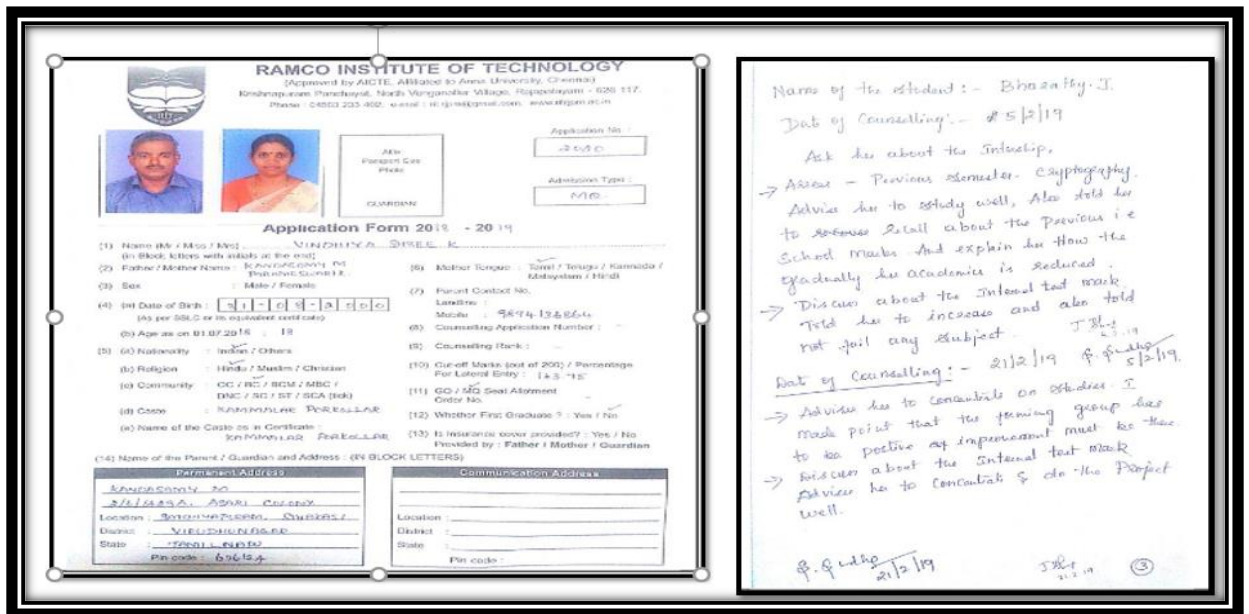 RAMCO INSTITUTE OF TECHNOLOGY
(Approved by AICTE, Affiliated to Anna University, Chennai)
Krishnapuram Panchayat, North Venganallur Village, Rajapalayam - 626 117.
Phone : 04563 233 400, e-mail :
Application No :
2080
Affix
Passport Size
Photo
GUARDIAN
Admission Type :
MQ
Application Form 2018 - 2019
(1) Name (Mr / Miss / Mrs) VINDHIYA SHREE K
(in Block letters with initials at the end)
(2) Father / Mother Name : KANDASAMY M
(3) Sex : Male / Female
(4) (a) Date of Birth : 31-08-2000
(As per SSLC or its equivalent certificate)
(b) Age as on 01.07.2018 : 18
(5) (a) Nationality : Indian / Others
(b) Religion : Hindu / Muslim / Christian
(c) Community : OC / BC / BCM / MBC /
DNC / SC / ST / SCA (tick)
(d) Caste : KAMMALAR PORKOLLAR
(e) Name of the Caste as in Certificate :
KAMMALAR PORKOLLAR
(6) Mother Tongue : Tamil / Telugu / Kannada /
Malayalam / Hindi
(7) Parent Contact No.
Landline :
Mobile :
(8) Counselling Application Number : -
(9) Counselling Rank : -
(10) Cut-off Marks (out of 200) / Percentage
For Lateral Entry :
(11) GQ / MQ Seat Allotment
Order No. -
(12) Whether First Graduate ? : Yes / No
(13) Is Insurance cover provided? : Yes / No
Provided by : Father / Mother / Guardian
(14) Name of the Parent / Guardian and Address : (IN BLOCK LETTERS)
Permanent Address
KANDASAMY M
ASARI COLONY
Location : SIVAKASI
District : VIRUDHUNAGAR
State : TAMIL NADU
Pin code :
Communication Address
Location :
District :
State :
Pin code :
Name of the student :- Bharathy.J.
Dat of Counselling :- 5/2/19
Ask her about the Intership,
→ Arrear - Pervious semester - Cryptography.
Advise her to study well, Also told her
to recall about the Previous i e
School marks. And explain her How the
gradually her academics is reduced.
→ Discuss about the Internal test mark.
Told her to increase and also told
not fail any subject.
5/2/19
Dat of Counselling :- 21/2/19
→ Advise her to concentrate on studies. I
made point that the group has
to be postive improvement must be there.
→ Discuss about the Internal test mark
Advise her to Concentrate & do the Project
well.
21/2/19
21.2.19
3